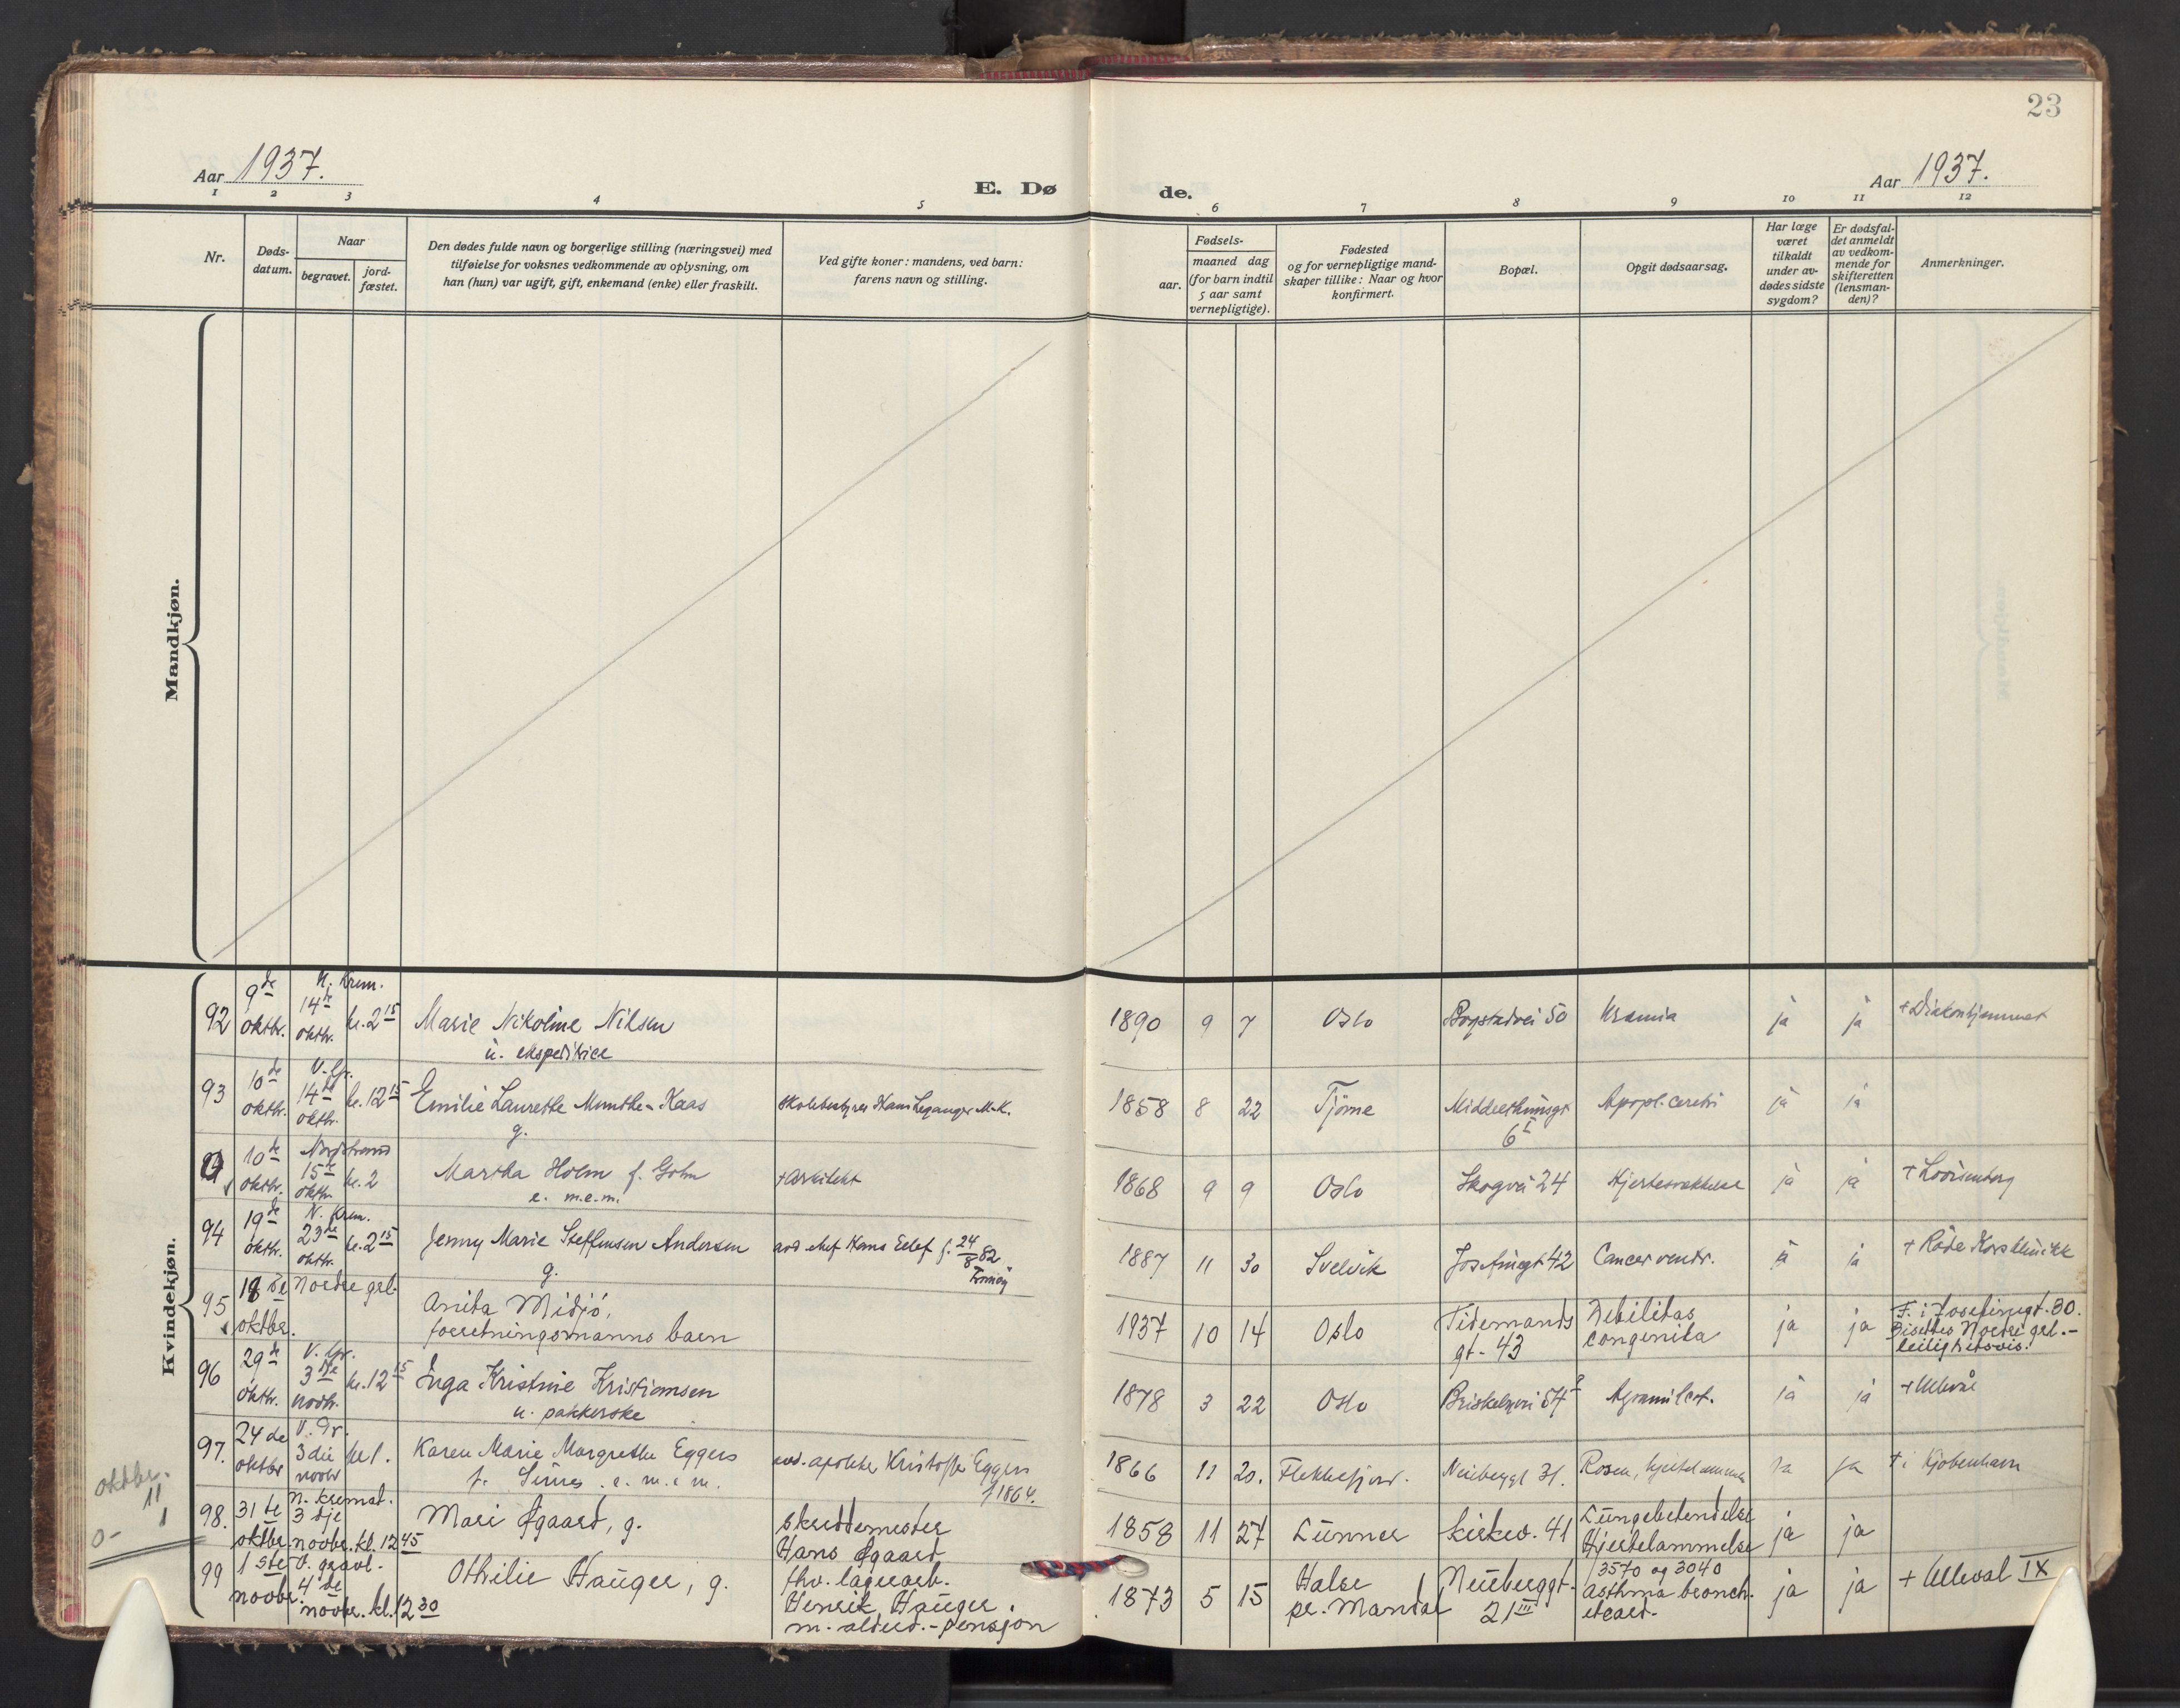 23
Aar 1937.
E. Dø de.
Aar 1937.
1 2 3 4 5 6 7 8 9 10 11 12
Nr.
Døds-
datum.
Naar
begravet.
jord-
fæstet.
Den dødes fulde navn og borgerlige stilling (næringsvei) med
tilføielse for voksnes vedkommende av oplysning, om
han (hun) var ugift, gift, enkemand (enke) eller fraskilt.
Ved gifte koner: mandens, ved barn:
farens navn og stilling.
Fødsels-
aar.
maaned dag
(for barn indtil
5 aar samt
vernepligtige).
Fødested
og for vernepligtige mand-
skaper tillike: Naar og hvor
konfirmert.
Bopæl.
Opgit dødsaarsag.
Har læge
været
tilkaldt
under av-
dødes sidste
sygdom?
Er dødsfal-
det anmeldt
av vedkom-
mende for
skifteretten
(lensman-
den)?
Anmerkninger.
Mandkjøn.
Kvindekjøn.
92 9de oktbr. N. Krem. 14de oktbr. kl. 2 15 Marie Nikoline Nilsen
u. ekspeditrice
1890 9 7 Oslo Bogstadvei 50 Uræmia ja ja + Diakonhjemmet
93 10de oktbr. V. Gr. 14de oktbr. kl. 12 15 Emilie Laurette Munthe-Kaas
g.
skolebestyrer Hans Leganger M-K.
1858 8 22 Tjöme Middelthunsgt 6 I Apopl. cerebri ja ja
10de oktbr. Nordstrand 15de oktbr. kl. 2 Martha Holm f. Gohn
e. m.e.m.
+ arkitekt
1868 9 9 Oslo Skogvei 24 Hjertesvekkelse ja ja + Lovisenberg
94 19de oktbr. N. Krem. 23de oktbr. kl. 2 15 Jenny Marie Steffensen Andersen
g.
avd. chef Hans Edlef f. 24/8 82
Tromöy
1887 11 30 Svelvik Josefinegt 42 Cancer ventr. ja ja + Röde Kors Klinikk
95 18de oktbr. Nordre grl. Anita Midjö,
forretningsmanns barn
1937 10 14 Oslo Tidemands gt. 43 Debilitas congenita ja ja F. i Josefinegt. 30.
Bisettes Nordre grl. -
leilighetsvis.
96 29de oktbr. V. Gr. 3die novbr. kl. 12 15 Inga Kristine Kristiansen
u. pakkerske
1878 3 22 Oslo Briskebyvei 54 ja ja + Ullevål
97. 24de oktbr V. Gr. 3die novbr kl 1. Karen Marie Margrethe Eggers
e. m. e m.
avd. apoteker Kristoffer Eggers
f 1864.
1866 11 20. Flekkefjord. Neubergt 31. Rosen, hjertelammelse ja ja + i Kjöbenhavn
98. 31te oktbr. N. kremat. 3dje novbr. kl. 12 45 Mari Ågaard, g.
skreddermester
Hans Ågaard
1858 11 27 Lunner kirkev. 41 Lungebetendelse
Hjertelammelse ja ja
99 1ste novbr. V. gravl. 4de novbr. kl. 12 30 Othilie Hauger, g.
fhv. lagerarb.
Henrik Hauger.
m. alderd.-pensjon
1873 5 15 Halse
pr. Mandal Neuberggt. 21 III 3570 og 3040
asthma bronch.
et card. ja ja + Ulleval IX
oktbr.
11
0- 1